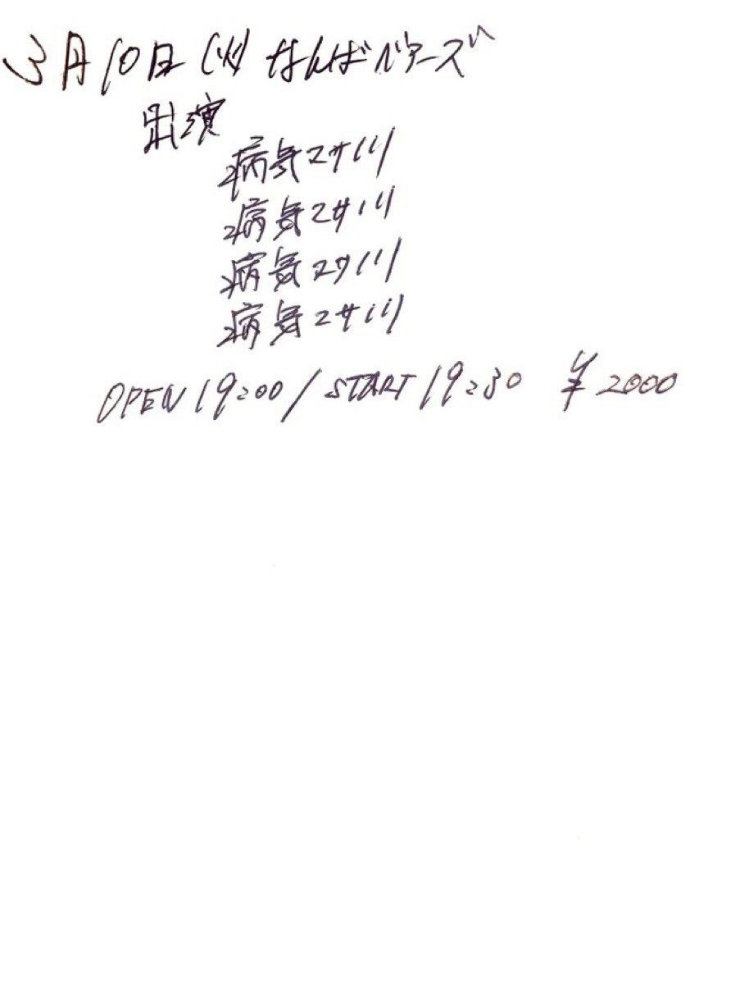 3月10日(火)なんばベアーズ
出演
病気マサハリ
病気マサハリ
病気マサハリ
病気マサハリ
OPEN 19:00 / START 19:30 ¥2000